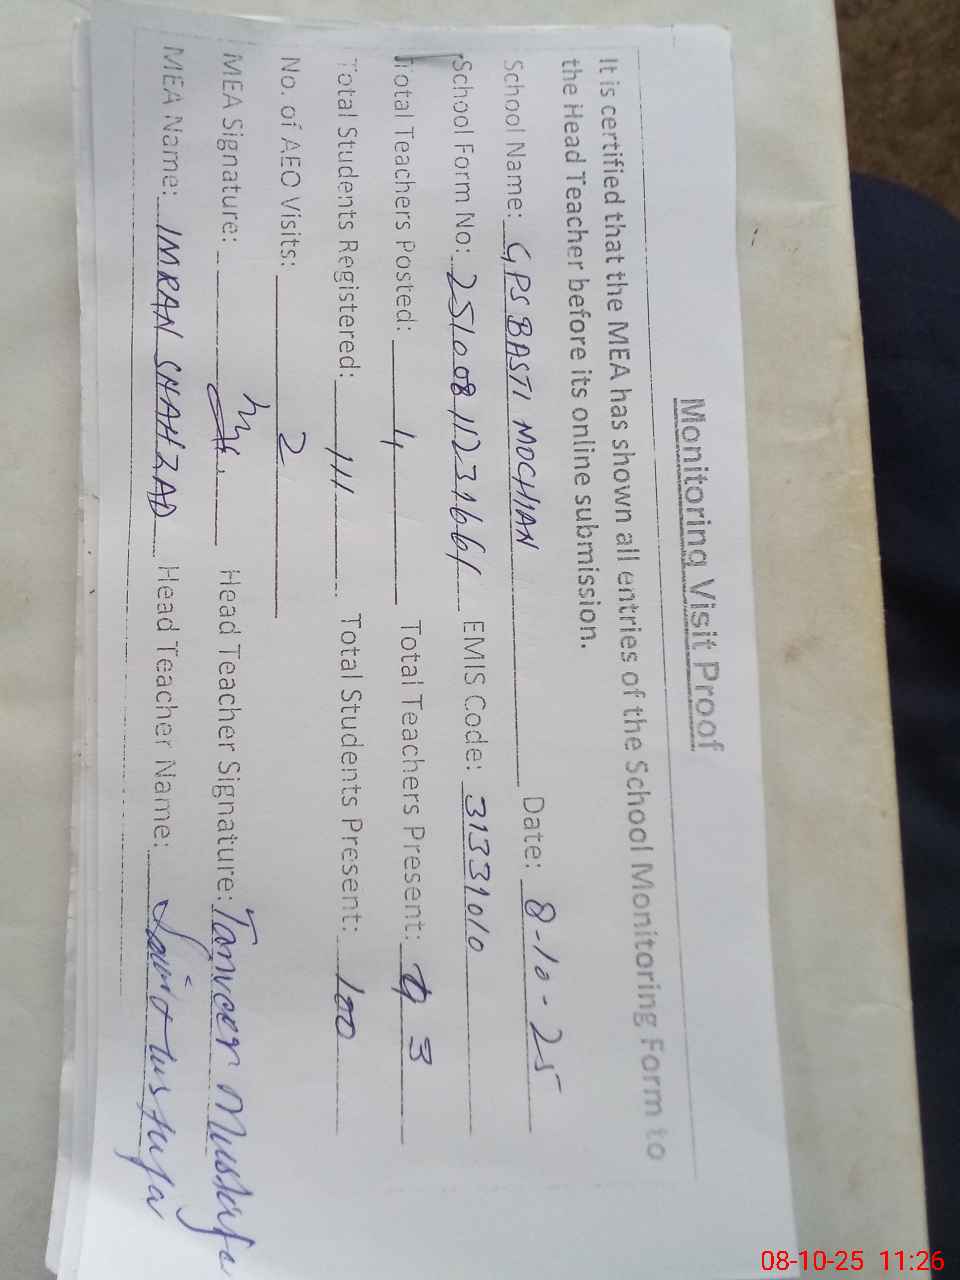 Monitoring Visit Proof
It is certified that the MEA has shown all entries of the School Monitoring Form to
the Head Teacher before its online submission.
School Name: GPS BASTI MOCHIAN Date: 8-10-25
School Form No: 25100811231661 EMIS Code: 31331010
Total Teachers Posted: 4 Total Teachers Present: 3
Total Students Registered: 111 Total Students Present: 100
No. of AEO Visits: 2
MEA Signature: Head Teacher Signature: Tanveer Mustafa
MEA Name: IMRAN SHAHZAD Head Teacher Name:
08-10-25 11:26